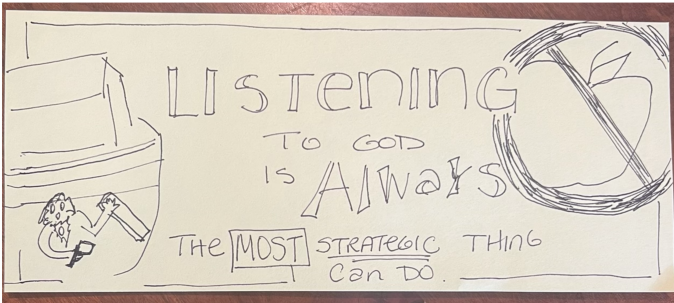 LISTENING
TO GOD
IS Always
THE MOST STRATEGIC THING
Can DO.